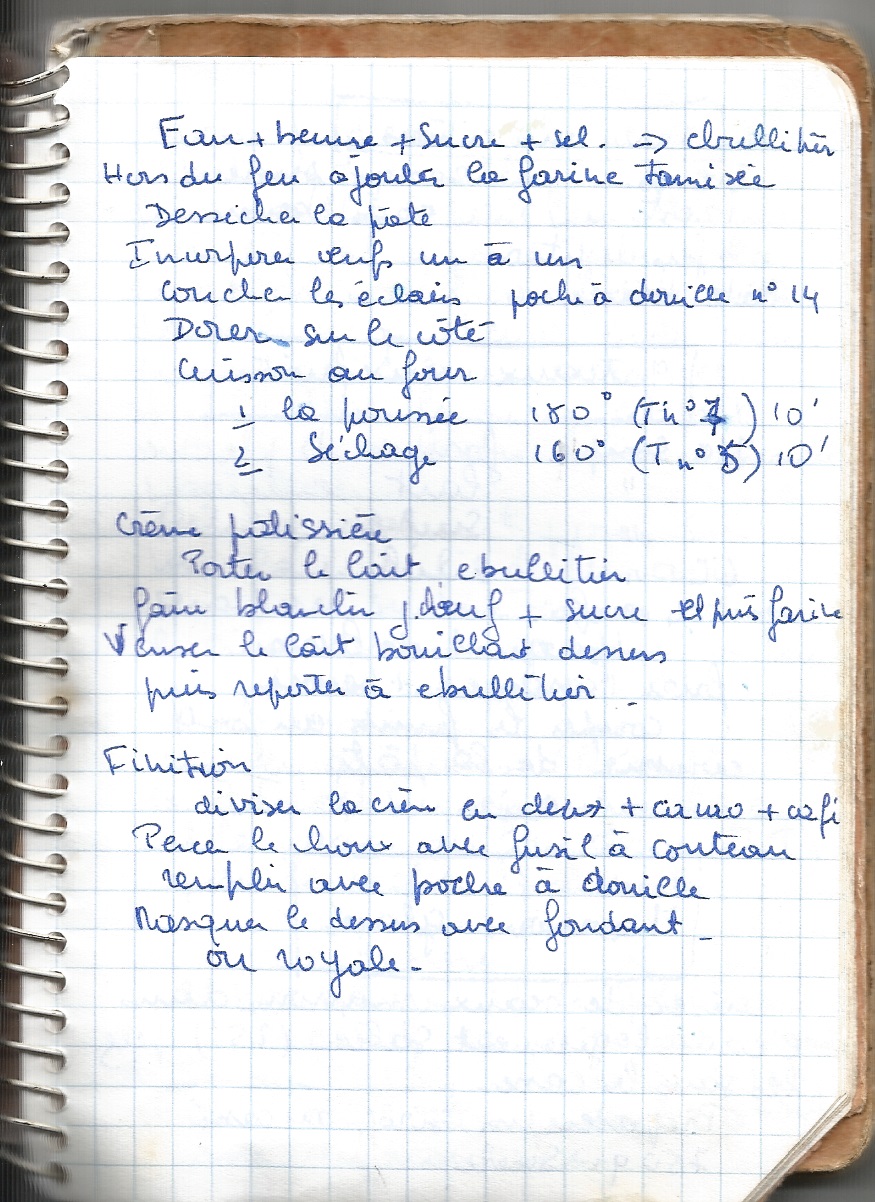 Eau + beurre + sucre + sel. => ebullition
Hors du feu ajouter la farine tamisée
Dessécher la pâte
Incorporer oeufs un à un
Coucher les éclairs poche à douille n° 14
Dorer sur le côté
Cuisson au four
1 la poussée 180° (T n° 7) 10'
2 Séchage 160° (T n° 5) 10'
Crème patissière
Porter le lait ebullition
faire blanchir j.d'oeuf + sucre et puis farine
Verser le lait bouillant dessus
puis reporter à ebullition -
Finition
diviser la crème en deux + cacao + café
Percer le choux avec fusil à couteau
remplir avec poche à douille
Masquer le dessus avec fondant -
ou royale -